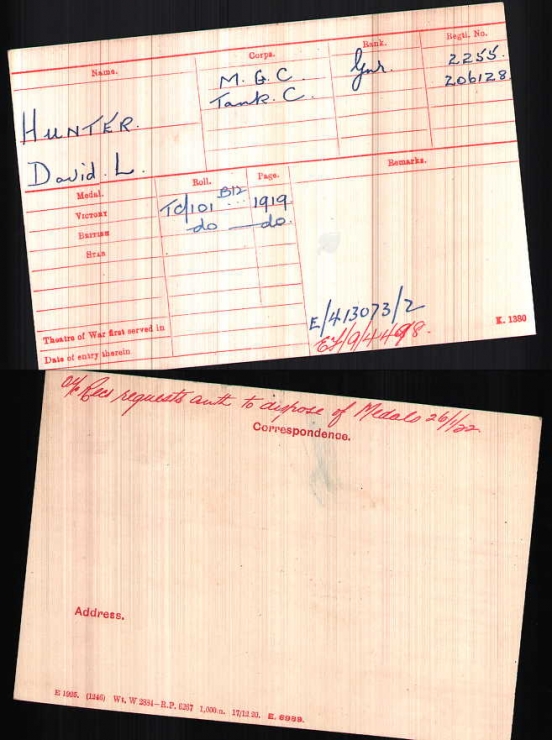 Name. Corps. Rank. Regtl. No.
M. G. C. Gnr. 2255.
Tank. C. 206128
HUNTER.
David. L.
Medal. Roll. Page. Remarks.
VICTORY TC/101 B12 ... 1919
BRITISH do — do.
STAR
Theatre of War first served in
Date of entry therein
E/413073/2
K. 1380
O/c Recs requests auth to dispose of Medals 26/1/22
Correspondence.
Address.
E 1905. (1246) Wt. W 2884—R.P. 6267 1,000m. 17/12 20. E. 6989.